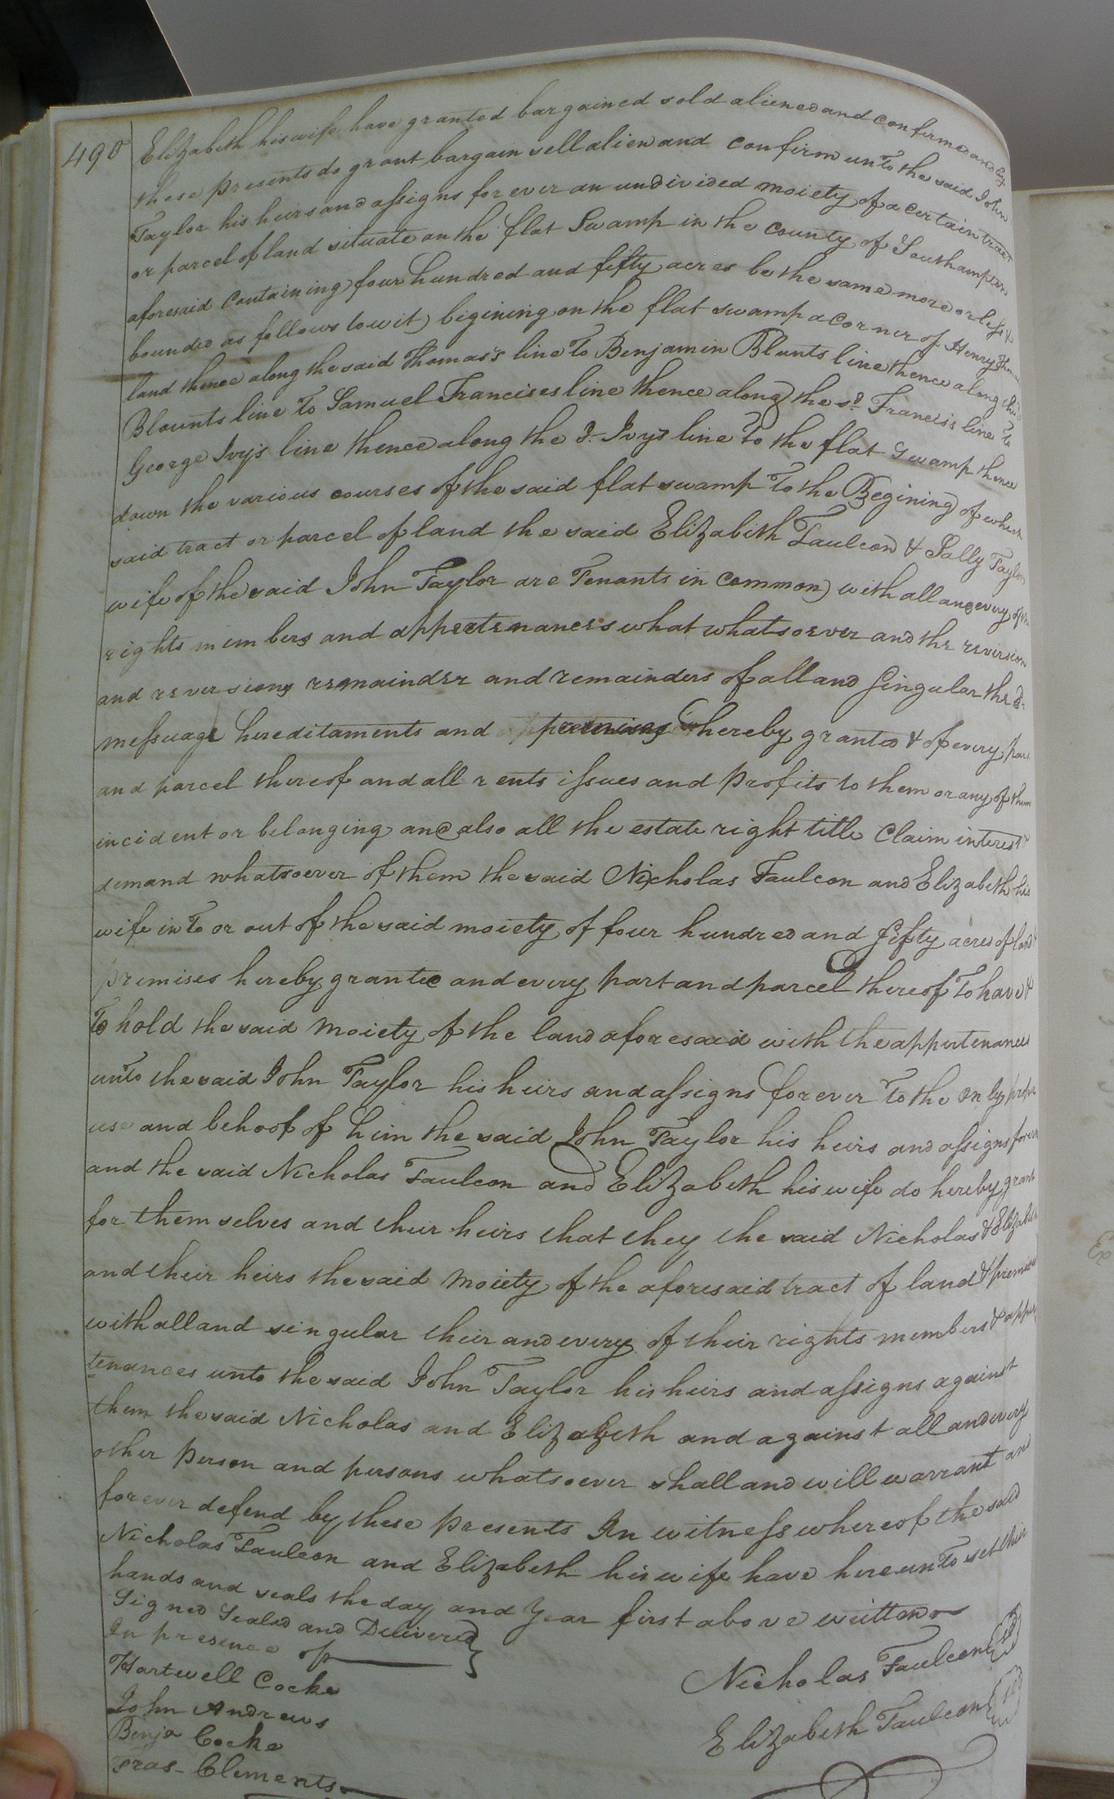 490
Elizabeth his wife have granted bargained sold aliened and confirmed and by
these presents do grant bargain sell alien and confirm unto the said John
Taylor his heirs and assigns for ever an undivided moiety of a certain tract
or parcel of land situate on the flat Swamp in the county of Southampton
aforesaid Containing four hundred and fifty acres be the same more or less &
bounded as follows towit) begining on the flat swamp a corner of Henry
land thence along the said Thomas's line To Benjamin Blunts line thence along the
Blounts line To Samuel Francises line thence along the sd. Francis's line To
George Ivy's line thence along the sd. Ivys line To the flat Swamp thence
down the various courses of the said flat swamp To the Begining of which
said tract or parcel of land the said Elizabeth Faulcon & Sally Taylor
wife of the said John Taylor are Tenants in common) with all and every of the
rights members and appertenances what whatsoever and the reversion
and reversions remainder and remainders of all and Singular the sd.
messuage hereditaments and premises hereby granted & of every part
and parcel thereof and all rents issues and profits to them or any of them
incident or belonging and also all the estate right title Claim interest &
demand whatsoever of them the said Nicholas Faulcon and Elizabeth his
wife in To or out of the said moiety of four hundred and fifty acres of land &
premises hereby grante and every part and parcel thereof To have &
To hold the said moiety of the land aforesaid with the appurtenances
unto the said John Taylor his heirs and assigns forever To the only proper
use and behoof of him the said John Taylor his heirs and assigns forever
and the said Nicholas Faulcon and Elizabeth his wife do hereby grant
for themselves and their heirs that they the said Nicholas & Elizabeth
and their heirs the said moiety of the aforesaid tract of land & premises
with all and singular their and every of their rights members & appur
tenances unto the said John Taylor his heirs and assigns against
them the said Nicholas and Elizabeth and against all and every
other person and persons whatsoever shall and will warrant and
forever defend by these presents In witness whereof the said
Nicholas Faulcon and Elizabeth his wife have hereunTo set their
hands and seals the day and year first above written
Signed Sealed and Delivered
In presence of
Hartwell Cocke
John Andrews
Benja Cocke
Fras. Clements
Nicholas Faulcon
Elizabeth Faulcon